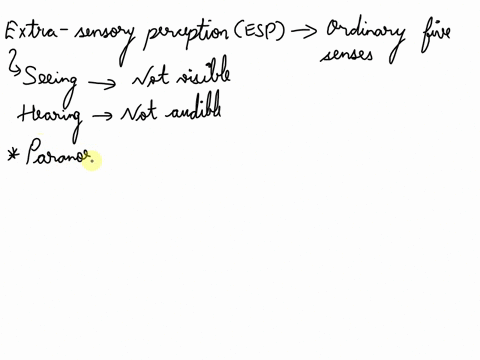 Extra-sensory perception (ESP) → Ordinary five
senses
↳ Seeing → Not visible
Hearing → Not audible
* Paranor